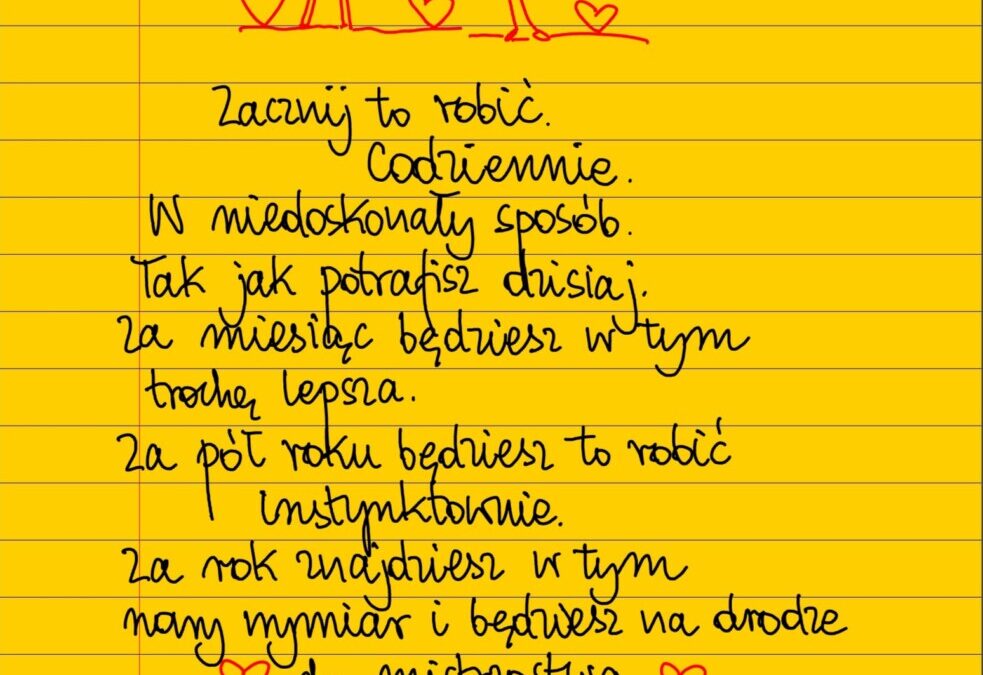 Zacznij to robić.
Codziennie.
W niedoskonały sposób.
Tak jak potrafisz dzisiaj.
Za miesiąc będziesz w tym
trochę lepsza.
Za pół roku będziesz to robić
instynktownie.
Za rok znajdziesz w tym
nowy wymiar i będziesz na drodze
do mistrzostwa